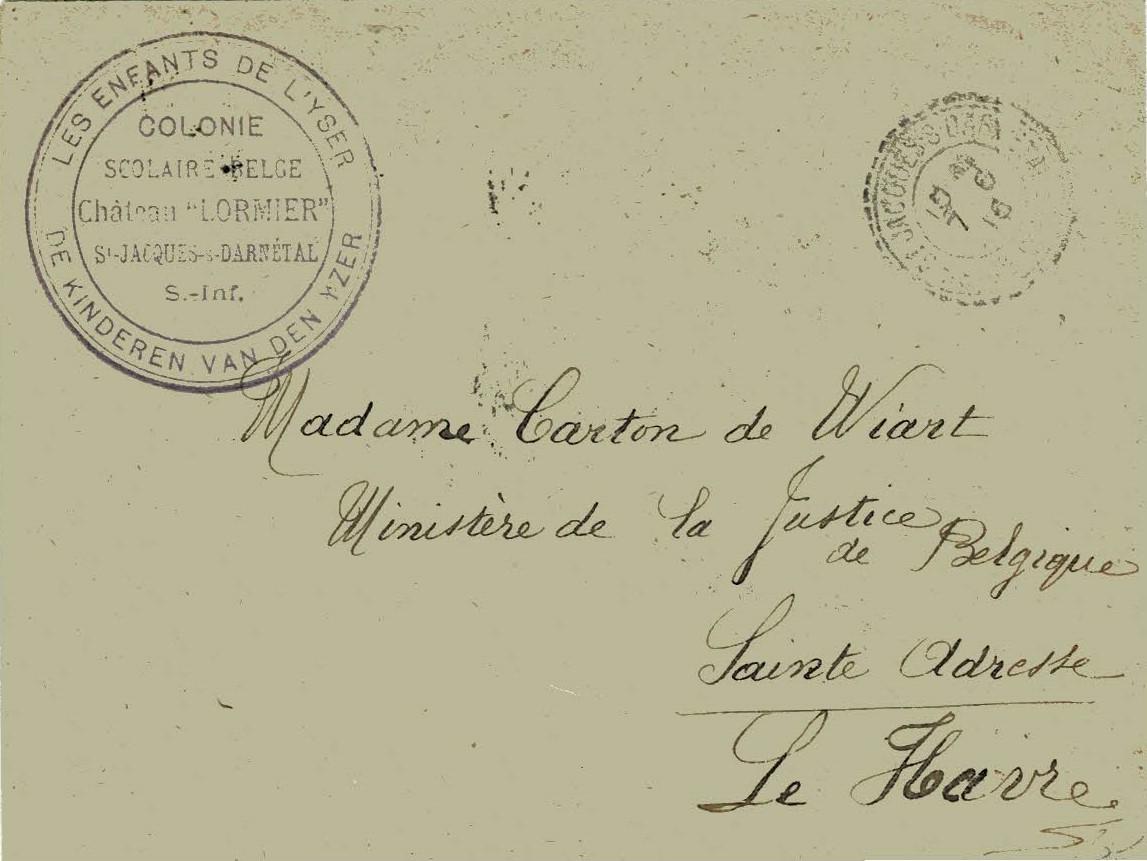 LES ENFANTS DE L'YSER
COLONIE
SCOLAIRE BELGE
Château "LORMIER"
St-JACQUES-s-DARNÉTAL
S.-Inf.
DE KINDEREN VAN DEN YZER
Madame Carton de Wiart
Ministère de la Justice
de Belgique
Sainte Adresse
Le Havre